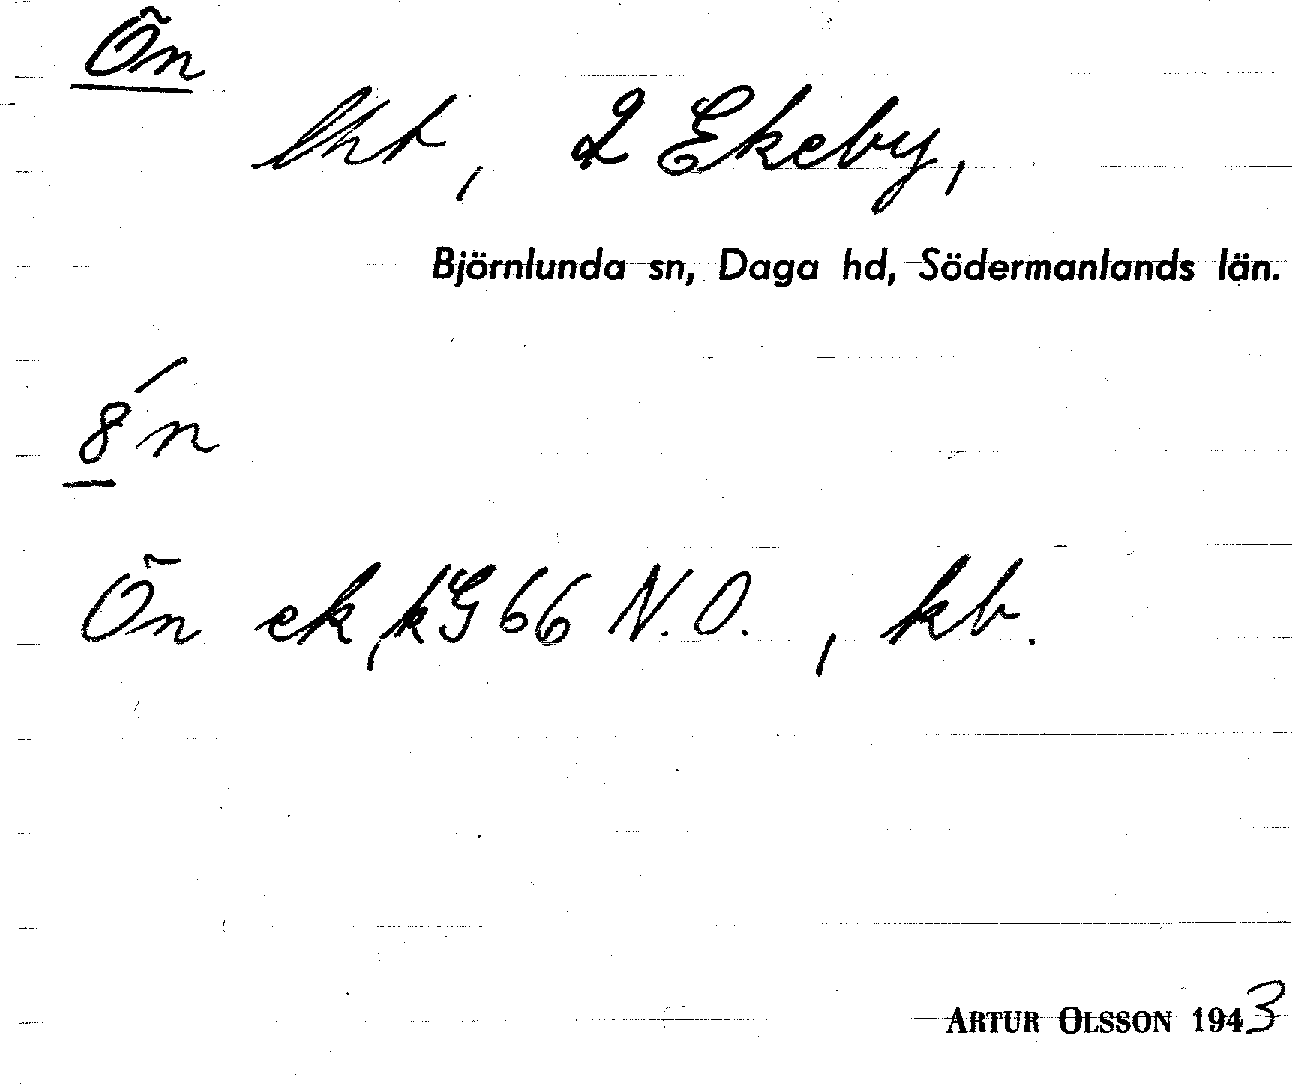 Ön
lht, 2 Ekeby,
Björnlunda sn, Daga hd, Södermanlands län.
8́n
Ön ek, kG 66 N.O., kb.
ARTUR OLSSON 1943